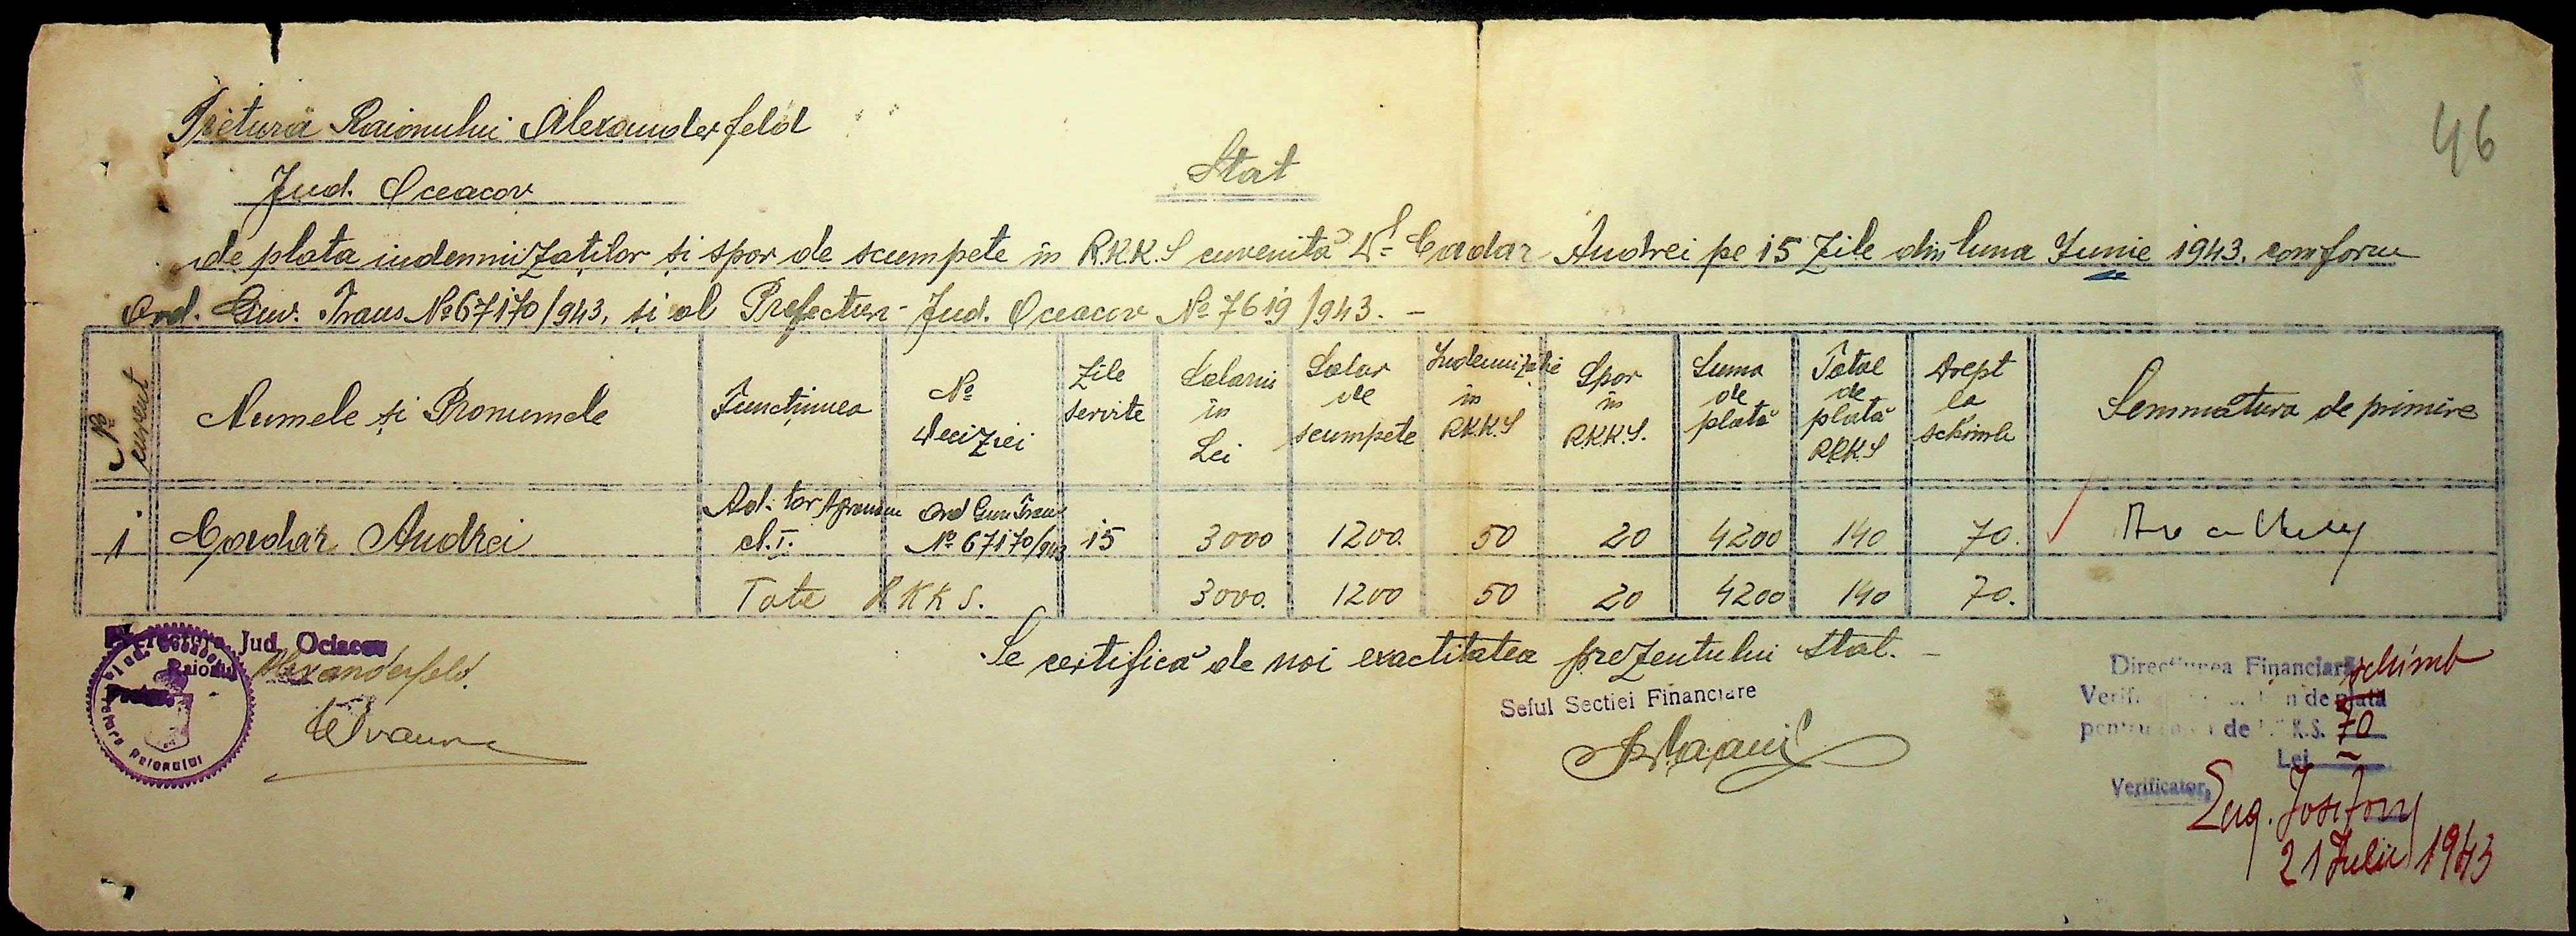 46
Pretura Raionului Alexanderfeld
Jud. Oceacov
Stat
de plata indemnizatilor și spor de scumpete în R.K.K.S cuvenită Dl Cadar Andrei pe 15 zile din luna Iunie 1943. conform
Ord. Guv. Trans № 67170/943, și al Prefecturi Jud. Oceacov № 7619/943. –
№ curent | Numele și Pronumele | Funcțiunea | № Deciziei | Zile servite | Salariu în Lei | Salar de scumpete | Indemnizatie în RKKS | Spor în RKKS. | Suma de plată | Total de plată RKKS | Drept la schimb | Semmătura de primire
1 | Cadar Andrei | cl. I. | Ord Guv Trans № 67170/943 | 15 | 3000 | 1200. | 50 | 20 | 4200 | 140 | 70.
Tote RKKS. | 3000. | 1200 | 50 | 20 | 4200 | 140 | 70.
Se certifică de noi exactitatea prezentului stat. –
Jud. Ociacov
Raionul Alexanderfeld.
Pretura Raionului
Seful Sectiei Financiare
Direcțiunea Financiară
schimb
de plată
pentru de R.K.K.S. 70
Lei –
Verificator,
21 Iulie 1943